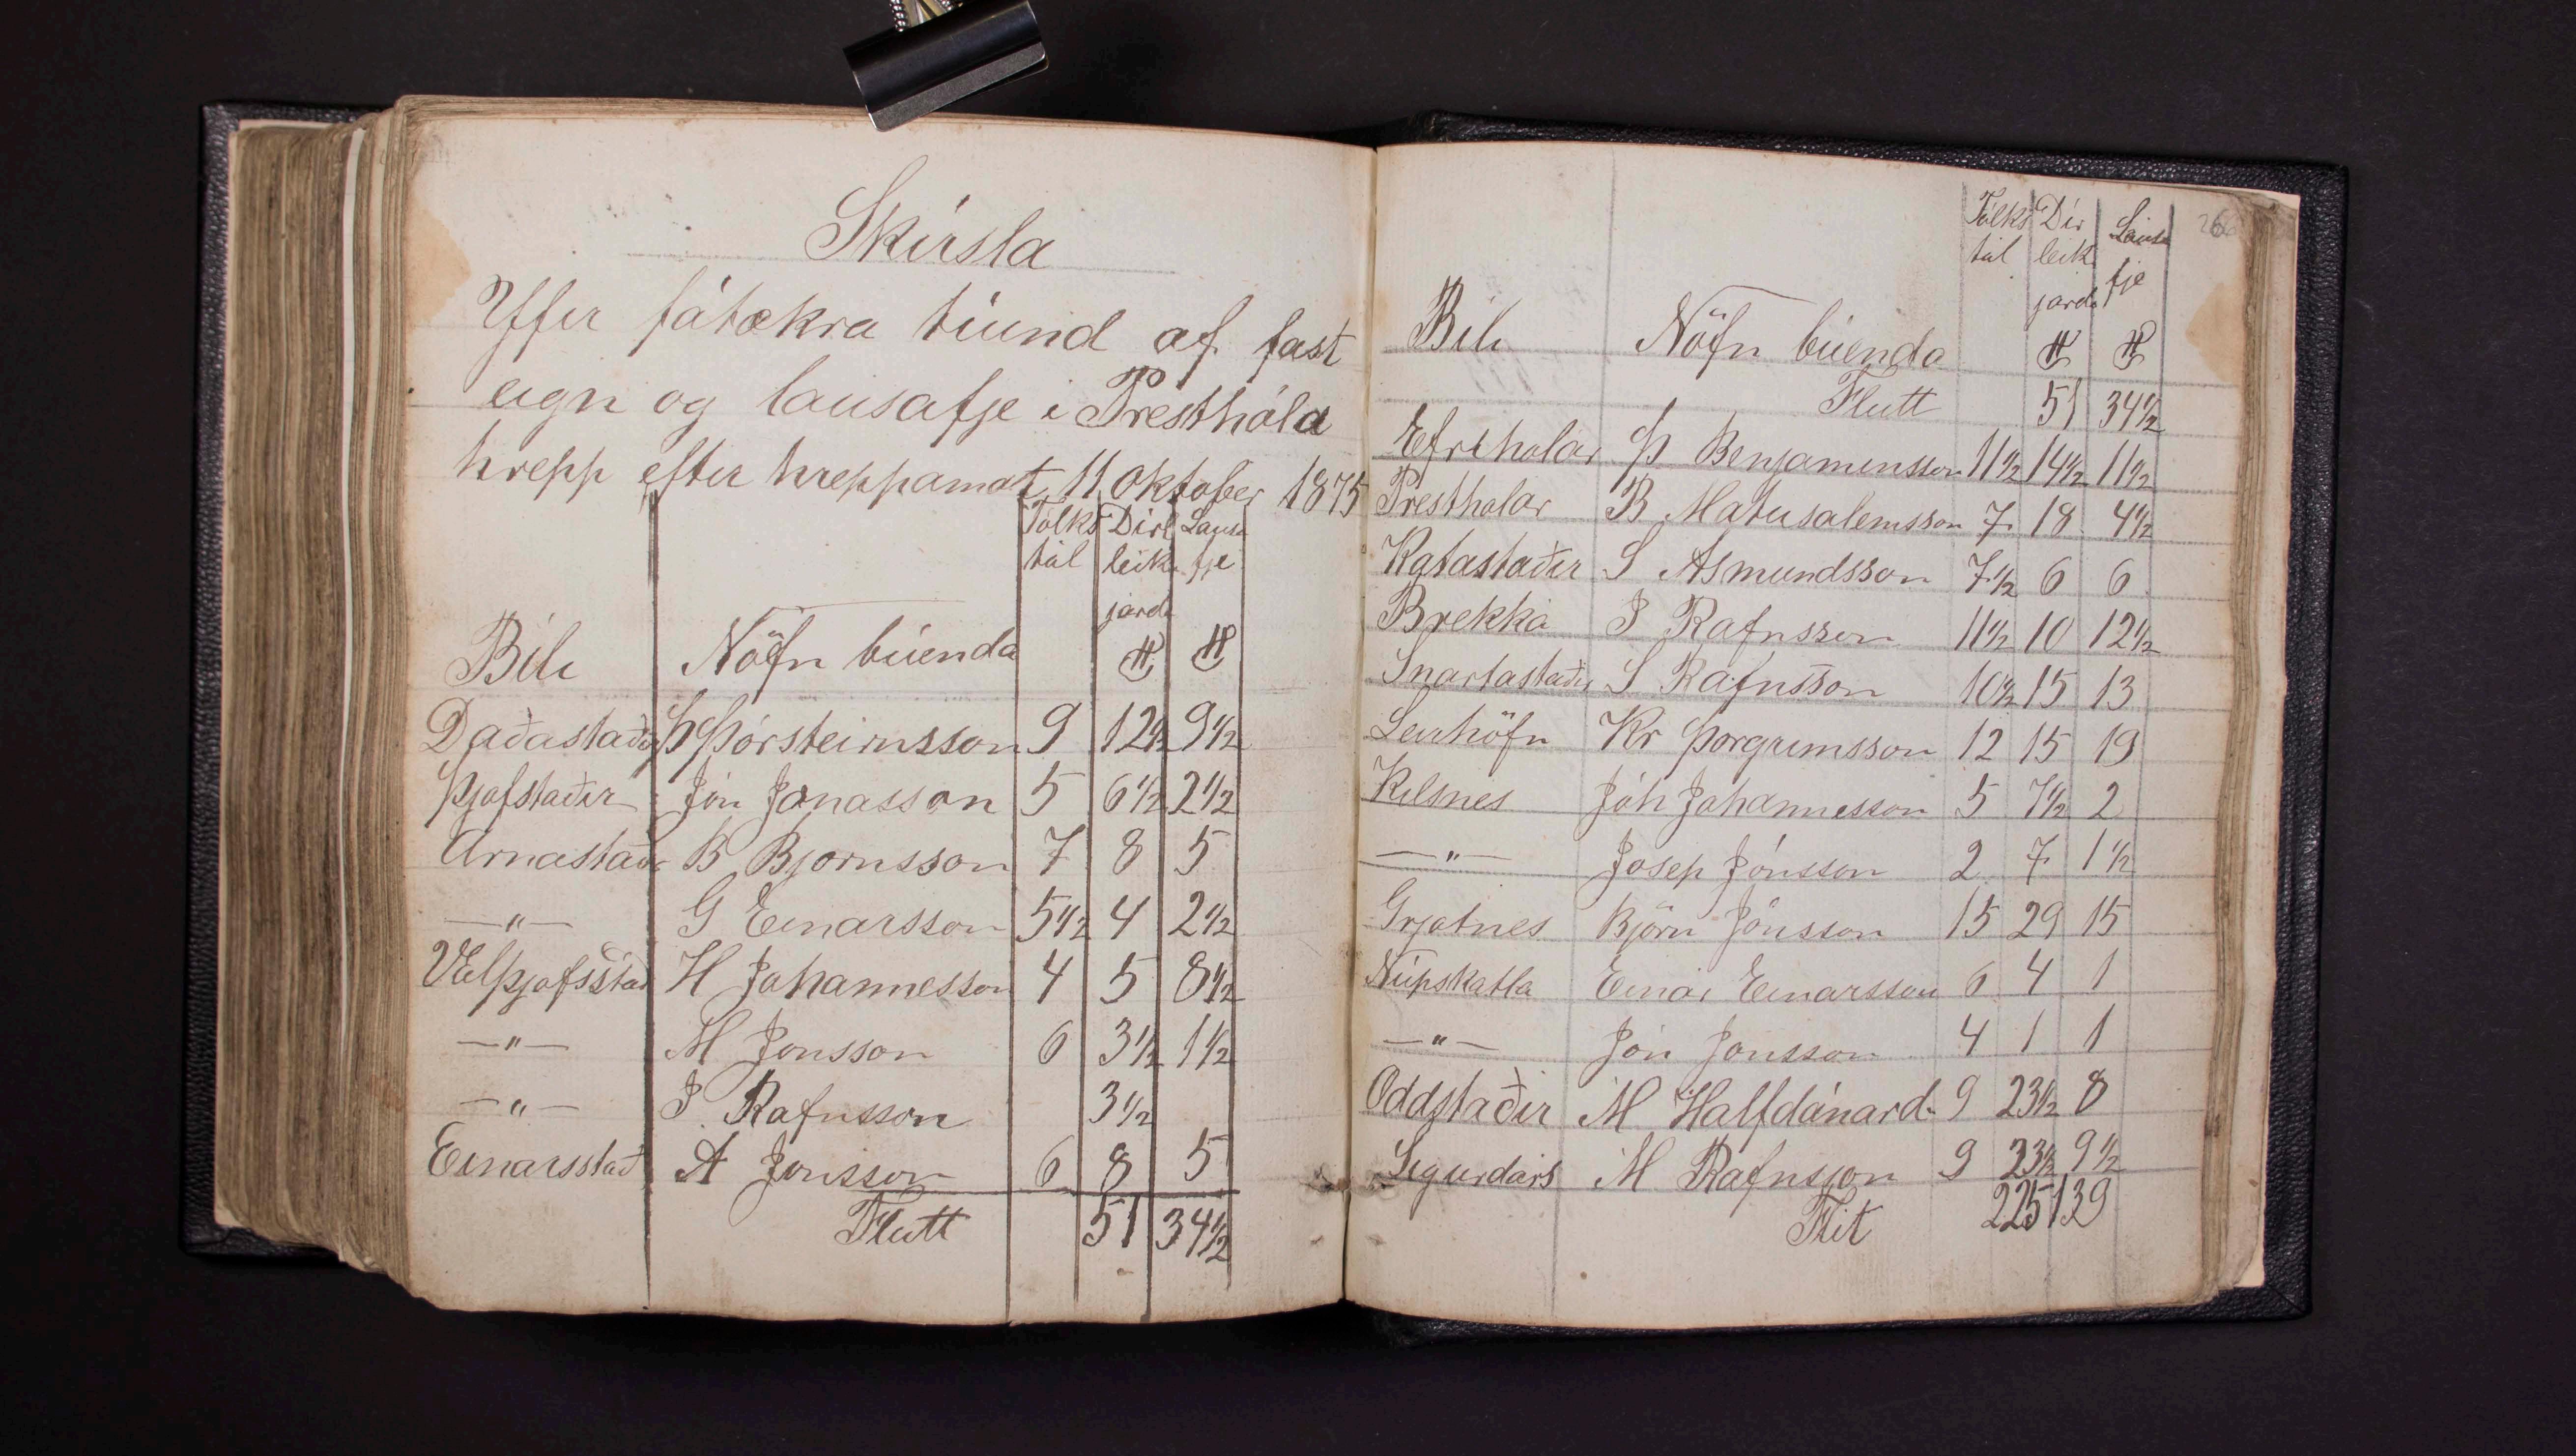 Skirsla
Yfir fátækra tíund af fast
eign og lausafje i Presthóla
hrepp eftir hreppamot 11 oktober 1875
Fólks Dirl Lausa
tal leik fje
jarda
Bíli Nöfn búenda
Daðastaðir Þ Þórsteinsson 9 12½ 9½
Þjofstaðir Jón Jonasson 5 6½ 2½
Arnastaðr B Bjornsson 7 8 5
—"— G Einarsson 5½ 4 2½
Valþjofsstað H Johannesson 4 5 8½
—"— M Jonsson 6 3½ 1½
—"— J Rafnsson 3½
Einarsstað A Jonsson 6 8 5
Flutt 51 34½
266
Fólks Dir Lausa
tal leik fje
jarda
Bíli Nöfn búenda
Flutt 51 34½
Efriholar Þ Benjaminsson 11½ 14½ 11½
Prestholar B Matusalemsson 7 18 4½
Katastaðir S Asmundsson 7½ 6 6
Brekka J Rafnsson 11½ 10 12½
Snartastaðir S Rafnsson 10½ 15 13
Leirhöfn Kr Þorgrimsson 12 15 19
Kilsnes Jóh Johannesson 5 7½ 2
—"— Josep Jónsson 2 7 1½
Grjotnes Björn Jónsson 15 29 15
Núpskatla Einar Einarsson 6 4 1
—"— Jón Jonsson 4 1 1
Oddstaðir M Halfdánard. 9 23½ 8
Sigurdars M Rafnsson 9 23½ 9½
Flit 225 139